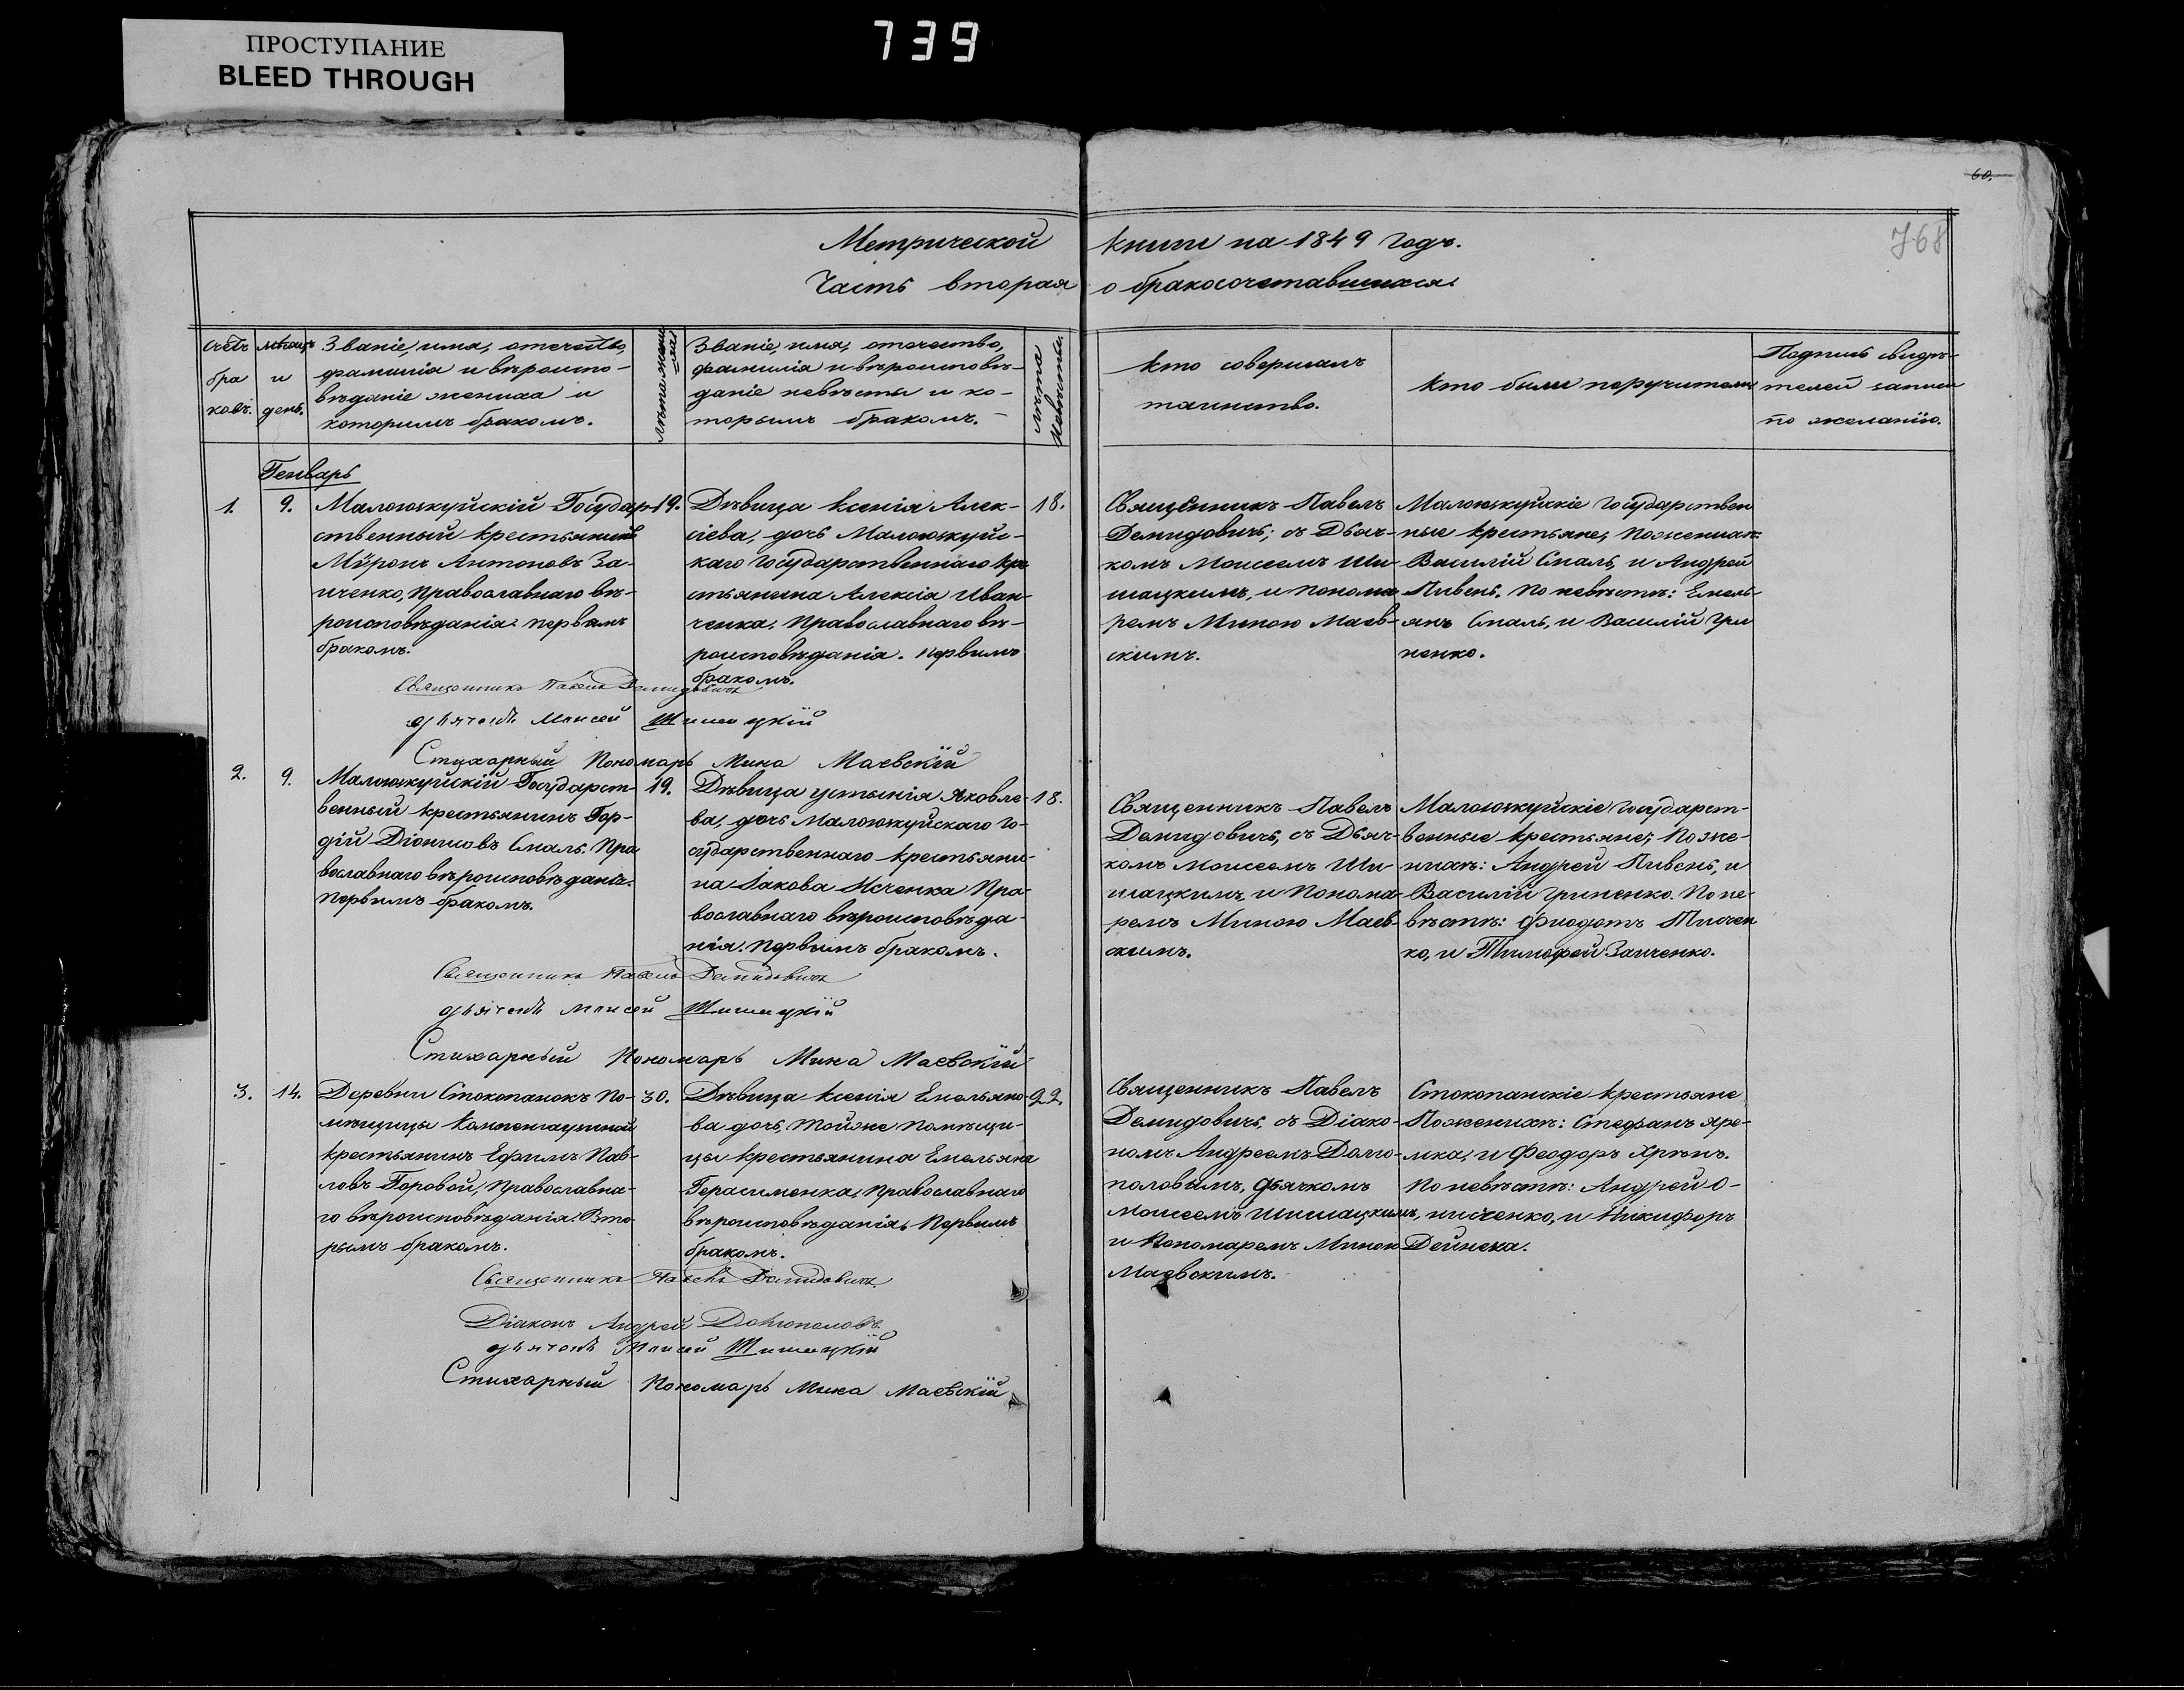 ПРОСТУПАНИЕ
BLEED THROUGH
739
60.
768
Метрической книги на 1849 годъ.
Часть вторая о бракосочетавшихся.
счетъ
бра
ковъ.
мѣсяцъ
и
день.
Званіе, имя, отечество,
фамилія и вѣроиспо-
вѣданіе жениха и
которымъ бракомъ.
лѣта жени
ха
Званіе, имя, отечество,
фамилія и вѣроисповѣ-
даніе невѣсты и ко-
торымъ бракомъ.
лѣта
невѣсты.
кто совершалъ
таинство.
кто были поручители
Подпись свидѣ-
телей записи
по желанію.
Генварь
1.
9.
Малоюжкуйскій Государ-
ственный крестьянинъ
Мѵронъ Антоновъ За-
иченко, православнаго вѣ-
роисповѣданія первымъ
бракомъ.
19.
Дѣвица Ксенія Алек-
сіева, дочь Малоюжкуйс-
каго государственнаго кре
стьянина Алексія Иван-
ченка, православнаго вѣ-
роисповѣданія. первымъ
бракомъ.
18.
Священникъ Павелъ
Демидовичъ; съ Дьяч-
комъ Моисеемъ Ши-
шацкимъ, и понома
ремъ Миною Маев-
скимъ.
Малоюжкуйскіе государствен
ные крестьяне, по женихѣ:
Василій Смаль, и Андрей
Пивень. По невѣстѣ: Емель-
янъ Смаль, и Василій Гри
ненко.
Священникъ Павелъ Демидовичъ
дьячокъ Моисей Шишацкій
Стихарный Пономарь Мина Маевскій
2.
9.
Малоюжкуйскій Государст-
венный крестьянинъ Гор-
дій Діонисовъ Смаль. Пра
вославнаго вѣроисповѣданія.
первымъ бракомъ.
19.
Дѣвица Устинія Яковле-
ва, дочь Малоюжкуйскаго го-
сударственнаго крестьяни-
на Іакова Исченка Пра-
вославнаго вѣроисповѣда-
нія. первымъ бракомъ.
18.
Священникъ Павелъ
Демидовичъ, съ Дьяч-
комъ Моисеемъ Ши-
шацкимъ, и Понома-
ремъ Миною Маев-
скимъ.
Малоюжкуйскіе государст-
венные крестьяне, По же-
нихѣ: Андрей Пивень, и
Василій Гриненко. По не-
вѣстѣ: Фиодотъ Тисчен
ко, и Тимофей Заиченко.
Священникъ Павелъ Демидовичъ
дьячокъ Моисей Шишацкій
Стихарный Пономарь Мина Маевскій
3.
14.
Деревни Стокопанокъ По-
мѣщицы
крестьянинъ Ефимъ Пав-
ловъ Боровой, Православна-
го вѣроисповѣданія: Вто
рымъ бракомъ.
30.
Дѣвица Ксенія Емельяно-
ва дочь, тойже Помѣщи-
цы крестьянина Емельяна
Герасименка, православнаго
вѣроисповѣданія, первымъ
бракомъ.
22.
Священникъ Павелъ
Демидовичъ, съ Діако-
номъ Андреемъ Долго-
половымъ, дьячкомъ
Моисеемъ Шишацкимъ,
и Пономаремъ Миною
Маевскимъ.
Стокопанскіе крестьяне
По женихѣ: Стефанъ Яре-
мка, и Феодоръ Хрѣнъ.
По невѣстѣ: Андрей О-
нисченко, и Никифоръ
Дейнека.
Священникъ Павелъ Демидовичъ
Діаконъ Андрей Долгополовъ
дьячокъ Моисей Шишацкій
Стихарный Пономарь Мина Маевскій